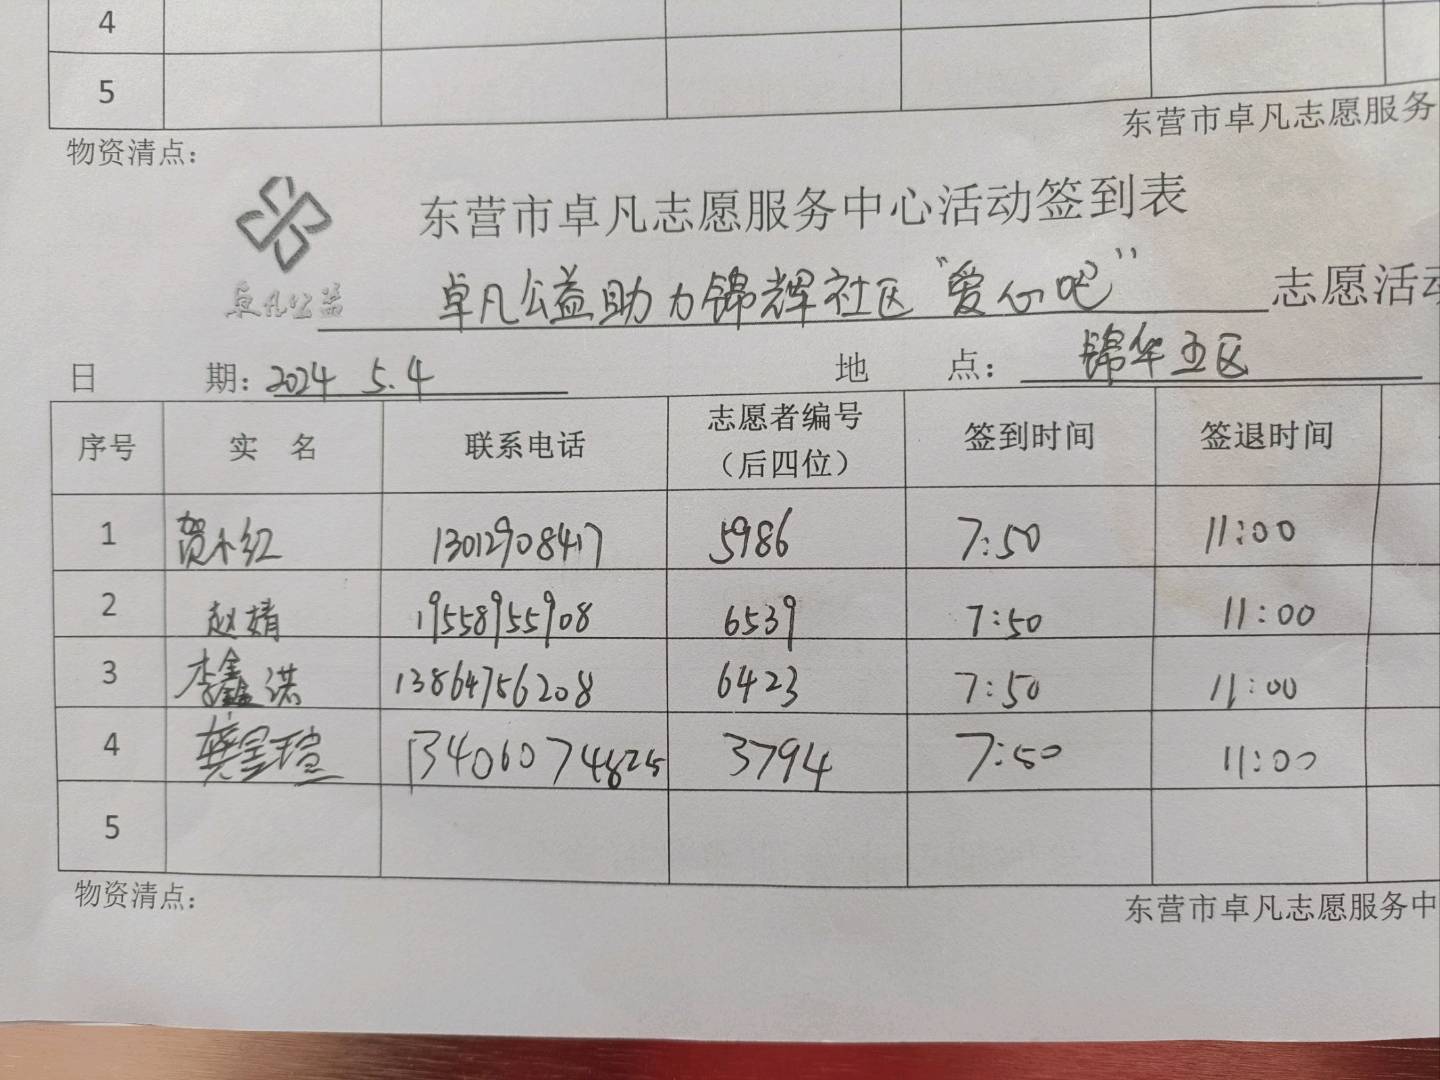 4
5
东营市卓凡志愿服务
物资清点：
东营市卓凡志愿服务中心活动签到表
卓凡公益
卓凡公益助力锦辉社区“爱心吧” 志愿活动
日 期：2024 5.4 地 点：锦华五区
序号 实 名 联系电话 志愿者编号（后四位） 签到时间 签退时间
1 贺小红 13012908417 5986 7:50 11:00
2 赵婧 19558955908 6539 7:50 11:00
3 李鑫诺 13864756208 6423 7:50 11:00
4 13406074825 3794 7:50 11:00
5
物资清点：
东营市卓凡志愿服务中